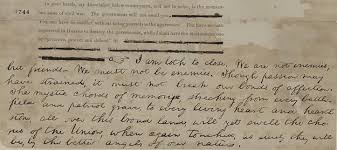 In your hands, my dissatisfied fellow countrymen, and not in mine, is the momen-
tous issue of civil war. The government will not assail you
You can have no conflict, without being yourselves the aggressors. You have no oath
registered in Heaven to destroy the government, while I shall have the most solemn one
to "preserve, protect and defend" it.
I am loth to close. We are not enemies,
but friends. We must not be enemies. Though passion may
have strained, it must not break our bonds of affection.
The mystic chords of memory, streching from every battle-
field, and patriot grave, to every living heart and hearth-
stone, all over this broad land, will yet swell the cho-
rus of the Union, when again touched, as surely they will
be, by the better angels of our nature.